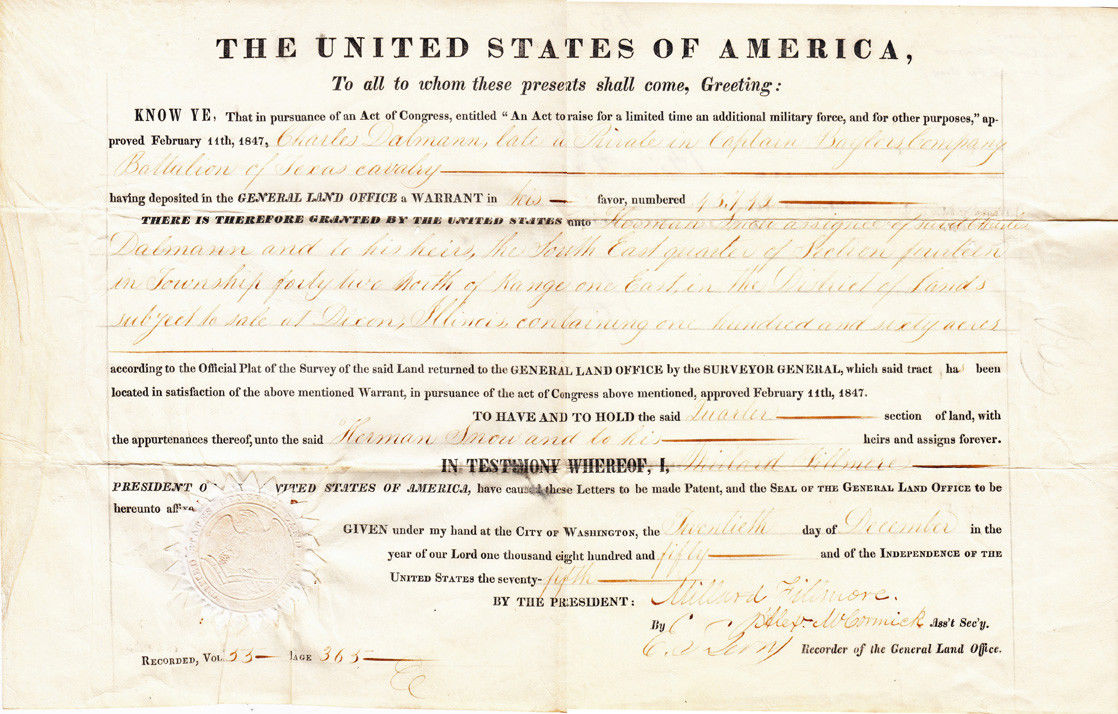 THE UNITED STATES OF AMERICA,
To all to whom these presents shall come, Greeting:
KNOW YE, That in pursuance of an Act of Congress, entitled "An Act to raise for a limited time an additional military force, and for other purposes," ap-
proved February 11th, 1847, Charles Dalmann, late a Private in Captain Baylors Company
Battalion of Texas cavalry
having deposited in the GENERAL LAND OFFICE a WARRANT in his favor, numbered
THERE IS THEREFORE GRANTED BY THE UNITED STATES unto Herman Snow assignee of said Charles
Dalmann and to his heirs, the South East quarter of Section fourteen
in Township forty two North of Range one East, in the District of Lands
subject to sale at Dixon, Illinois, containing one hundred and sixty acres
according to the Official Plat of the Survey of the said Land returned to the GENERAL LAND OFFICE by the SURVEYOR GENERAL, which said tract ha been
located in satisfaction of the above mentioned Warrant, in pursuance of the act of Congress above mentioned, approved February 11th, 1847.
TO HAVE AND TO HOLD the said Quarter section of land, with
the appurtenances thereof, unto the said Herman Snow and to his heirs and assigns forever.
IN TESTIMONY WHEREOF, I, Millard Fillmore
PRESIDENT O UNITED STATES OF AMERICA, have caused these Letters to be made Patent, and the SEAL OF THE GENERAL LAND OFFICE to be
hereunto affixed
GIVEN under my hand at the CITY OF WASHINGTON, the Twentieth day of December in the
year of our Lord one thousand eight hundred and fifty and of the INDEPENDENCE OF THE
UNITED STATES the seventy-fifth
BY THE PRESIDENT: Millard Fillmore.
By Alex. McCormick Ass't Sec'y.
Recorder of the General Land Office.
RECORDED, VOL. 53 PAGE 365